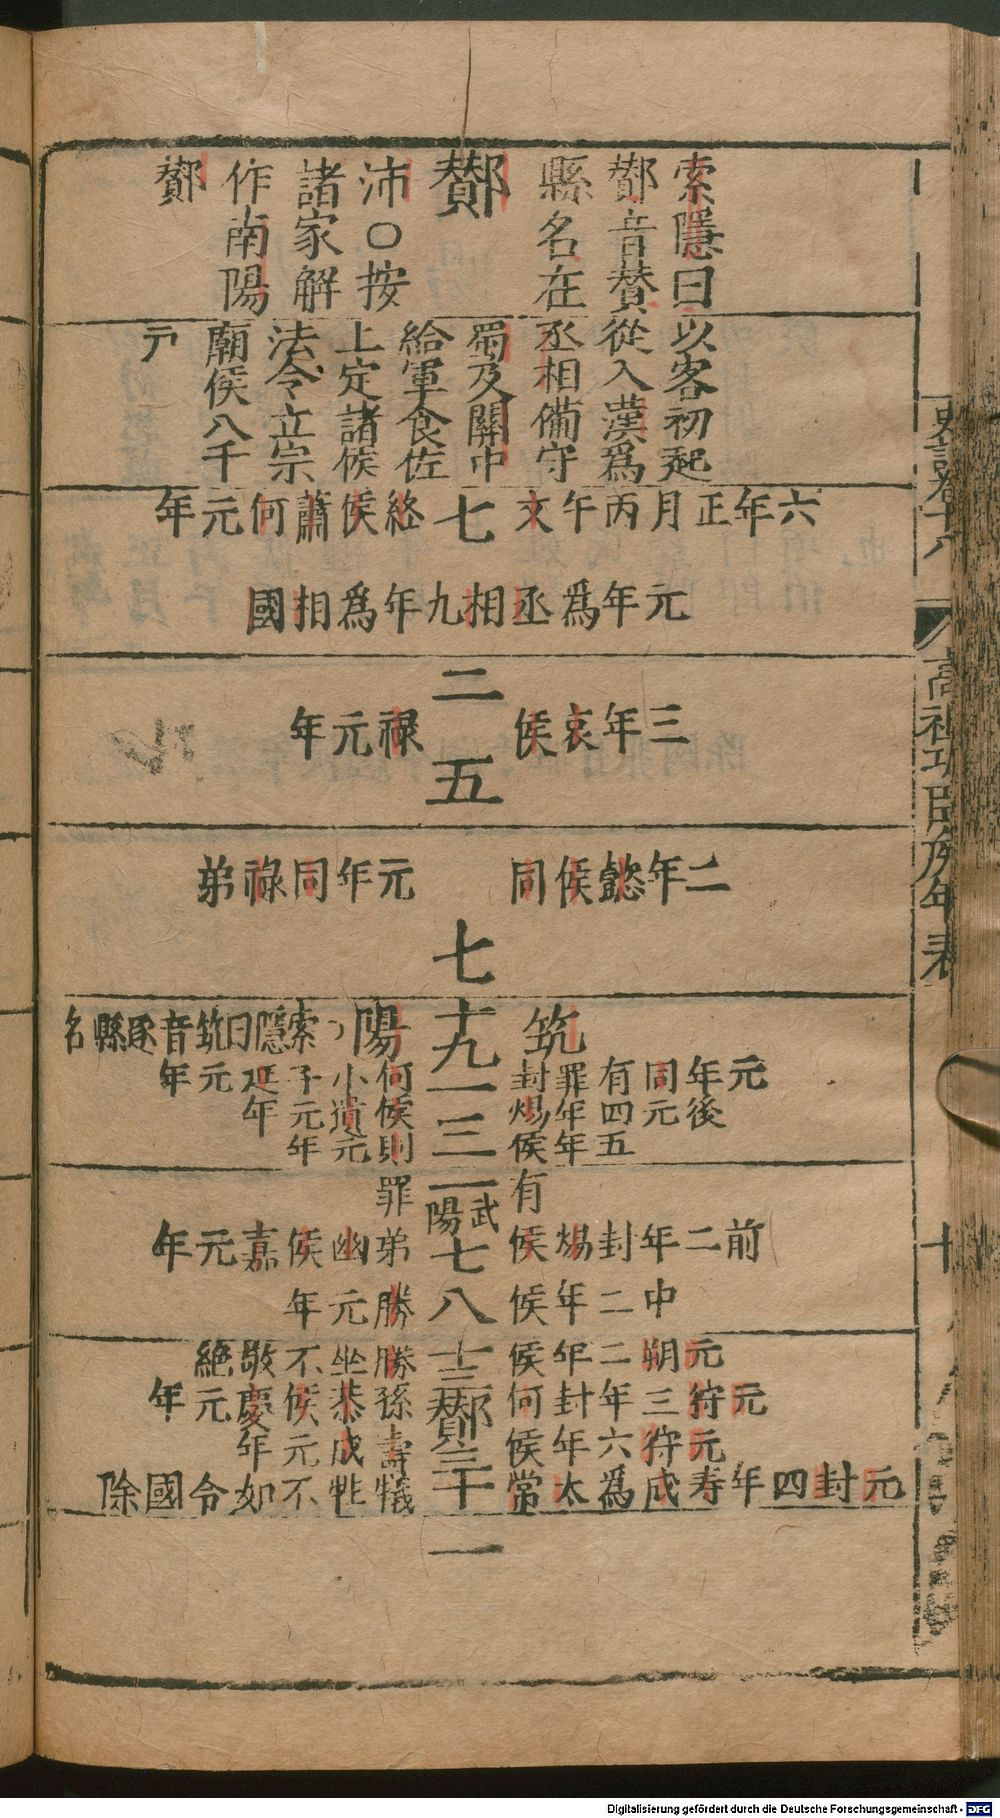 史記卷十八
高祖功臣侯年表
十
索隱曰
酇音贊
縣名在
酇
沛○按
諸家解
作南陽
酇
以客初起
從入漢爲
丞相備守
蜀及關中
給軍食佐
上定諸侯
法令立宗
廟侯八千
戶
六年正月丙午文終侯蕭何元年
七
元年爲丞相九年爲相國
二
三年哀侯祿元年
五
二年懿侯同元年同祿弟
七
筑陽 索隱曰筑音逐縣名
十九
元年後
同元
有四五
罪年年
封煬侯
一
三
何侯則
小遺元
子元年
延年
元年
有罪
一
武陽
前二年封煬侯弟幽侯嘉元年
七
中二年侯勝元年
八
元朔二年侯勝坐不敬絕
十三
元狩三年封何孫恭侯慶元年
酇三
元狩六年侯壽成元年
十
元封四年壽成爲太常犧牲不如令國除
一
Digitalisierung gefördert durch die Deutsche Forschungsgemeinschaft - DFG